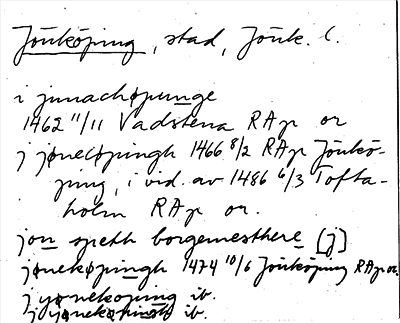 Jönköping, stad, Jönk. l.
i junachøpunge
1462 11/11 Vadstena RAp or
j jønecøpingh 1466 8/2 RAp Jönkö-
ping, i vid. av 1486 6/3 Tofta-
holm RAp or.
jon speth borgemesthere [j]
jønekøpingh 1474 10/6 Jönköping RAp or.
j yønekoping ib.
j yønekøpingh ib.